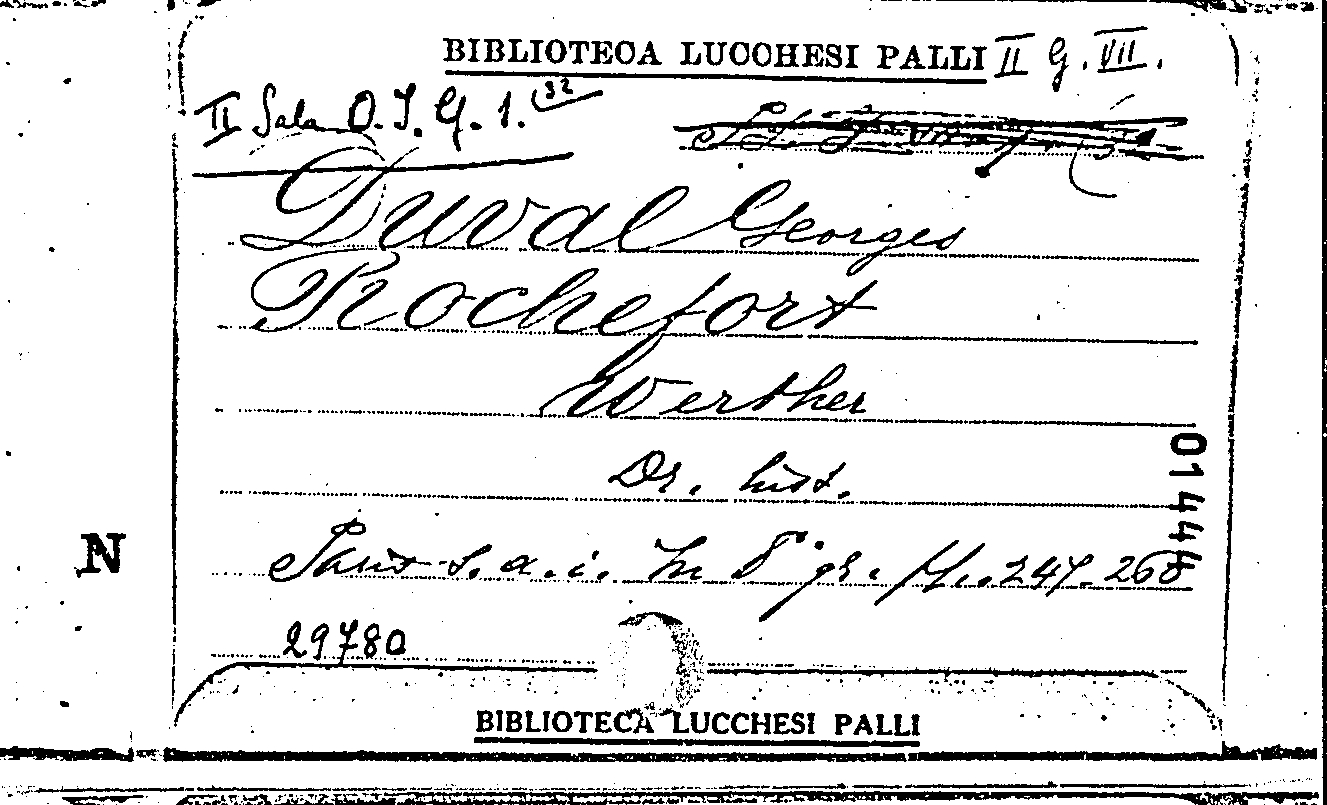 BIBLIOTECA LUCCHESI PALLI II G. VII.
II Sala O. I. G. 1. (32
Duval Georges
Rochefort
Werther
Dr. hist.
s. a. i. In 8° gr. pp. 247-268
29780
01444
N
BIBLIOTECA LUCCHESI PALLI